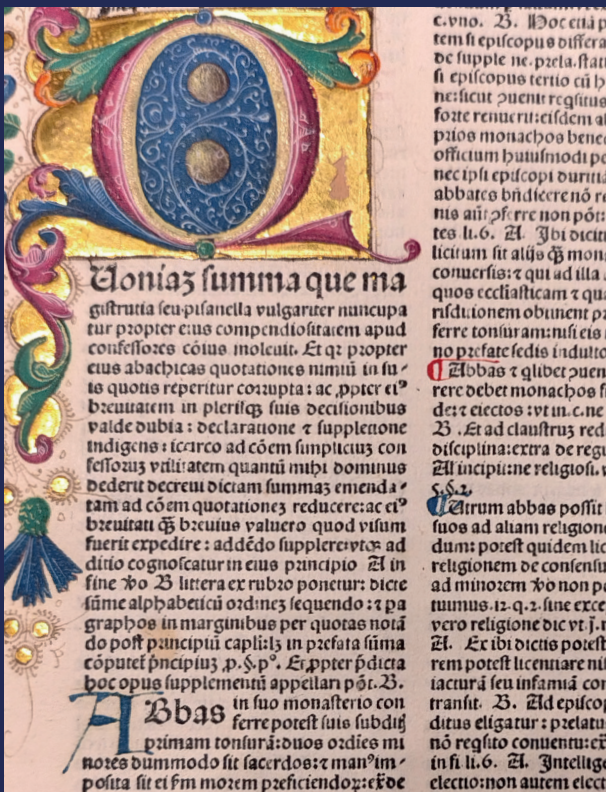 QUoniaꝫ summa que ma
gistrutia seu pisanella vulgariter nuncupa
tur propter eius compendiositatem apud
confessores cōius inoleuit. Et qꝛ propter
eius abachicas quotationes nimiū in su-
is quotis reperitur corrupta: ac ꝓpter eiꝰ
breuitatem in plerisqꝫ suis decisionibus
valde dubia: declaratione ⁊ suppletione
indigens: iccirco ad cōem simpliciuꝫ con
fessoruꝫ vtilitatem quantū mihi dominus
dederit decreui dictam summaꝫ emenda-
tam ad cōem quotationeꝫ reducere: ac eiꝰ
breuitati ꝙ̃ breuius valuero quod visum
fuerit expedire: addēdo supplere: vtqꝫ ad
ditio cognoscatur in eius principio A in
fine ꝟo B littera ex rubro ponetur: dicte
sūme alphabeticū ordineꝫ sequendo: ⁊ pa
graphos in marginibus per quotas notā
do post principiū capli: lꝫ in prefata sūma
cōputet̃ pncipiuꝫ .p.§.pº. Et ꝓpter p̄dicta
hoc opus supplementū appellari pōt. B.
ABbas in suo monasterio con
ferre potest suis subditꝭ
primam tonsurā: duos ordīes mi
nores dummodo sit sacerdos: ⁊ manꝰim-
posita sit ei ẜm morem preficiendoꝝ: ex̃ de
c.vno. B. Hoc etiā p
tem si episcopus differa
de supple ne. prela. stati
si episcopus tertio cū h
ne: sicut ꝯuenit reqsitus
forte renuerit: eisdem ab
prios monachos bene
officium huiusmodi po
nec ipsi episcopi duritia
abbates bn̄dicere nō re
nis aūt ꝯferre non pōt:
tes li.6. A. Ibi dicit
licitum sit alijs ꝙ̃ mon
conuersis: ⁊ qui ad illa
quos eccliasticam ⁊ qua
risdictionem obtinent pr
ferre tonsuram: nisi eis
no prefate sedis indulto
Abbas ⁊ qlibet ꝯuen
rere debet monachos fu
de: ⁊ eiectos: vt in.c.ne
B. Et ad claustruꝫ red
disciplina: extra de regu
A incipit: ne religiosi. v
§.§.2.
Utrum abbas possit
suos ad aliam religione
dum: potest quidem lic
religionem de consensu
ad minorem ꝟo non po
tuimus.12.q.2. sine exce
vero religione dic vt j.
A. Ex ibi dictis potest
rem potest licentiare nis
iacturā seu infamiā con
transit. B. Ad episcop
ditus eligatur: prelatu
nō reqsito conuentu: ex̃
in fi li.6. A. Intellige
electio: non autem elect